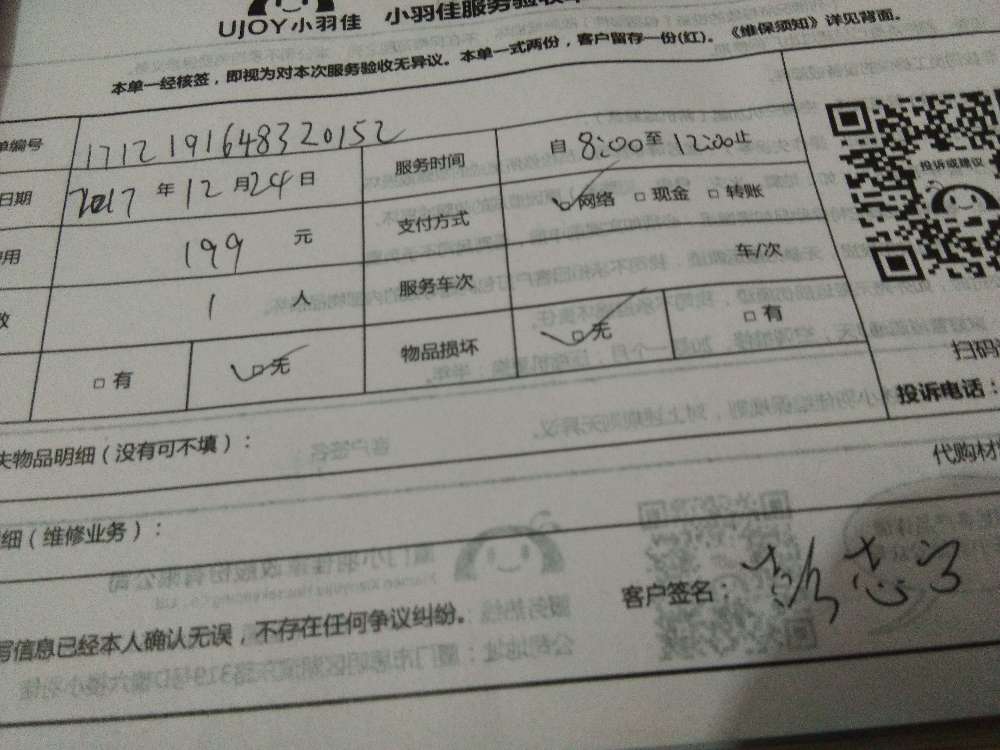 UJOY小羽佳 小羽佳服务验收单
本单一经核签，即视为对本次服务验收无异议。本单一式两份，客户留存一份(红)。《维保须知》详见背面。
单编号 1712191648320152 服务时间 自 8:00 至 12:00 止
日期 2017 年 12 月 24 日 支付方式 网络 □ 现金 □ 转账
用 199 元 服务车次 车/次
数 1 人 物品损坏 □ 无 □ 有
□ 有 □ 无
投诉或建议
扫码
投诉电话：
失物品明细（没有可不填）：
代购材
细（维修业务）：
客户签名：
写信息已经本人确认无误，不存在任何争议纠纷。